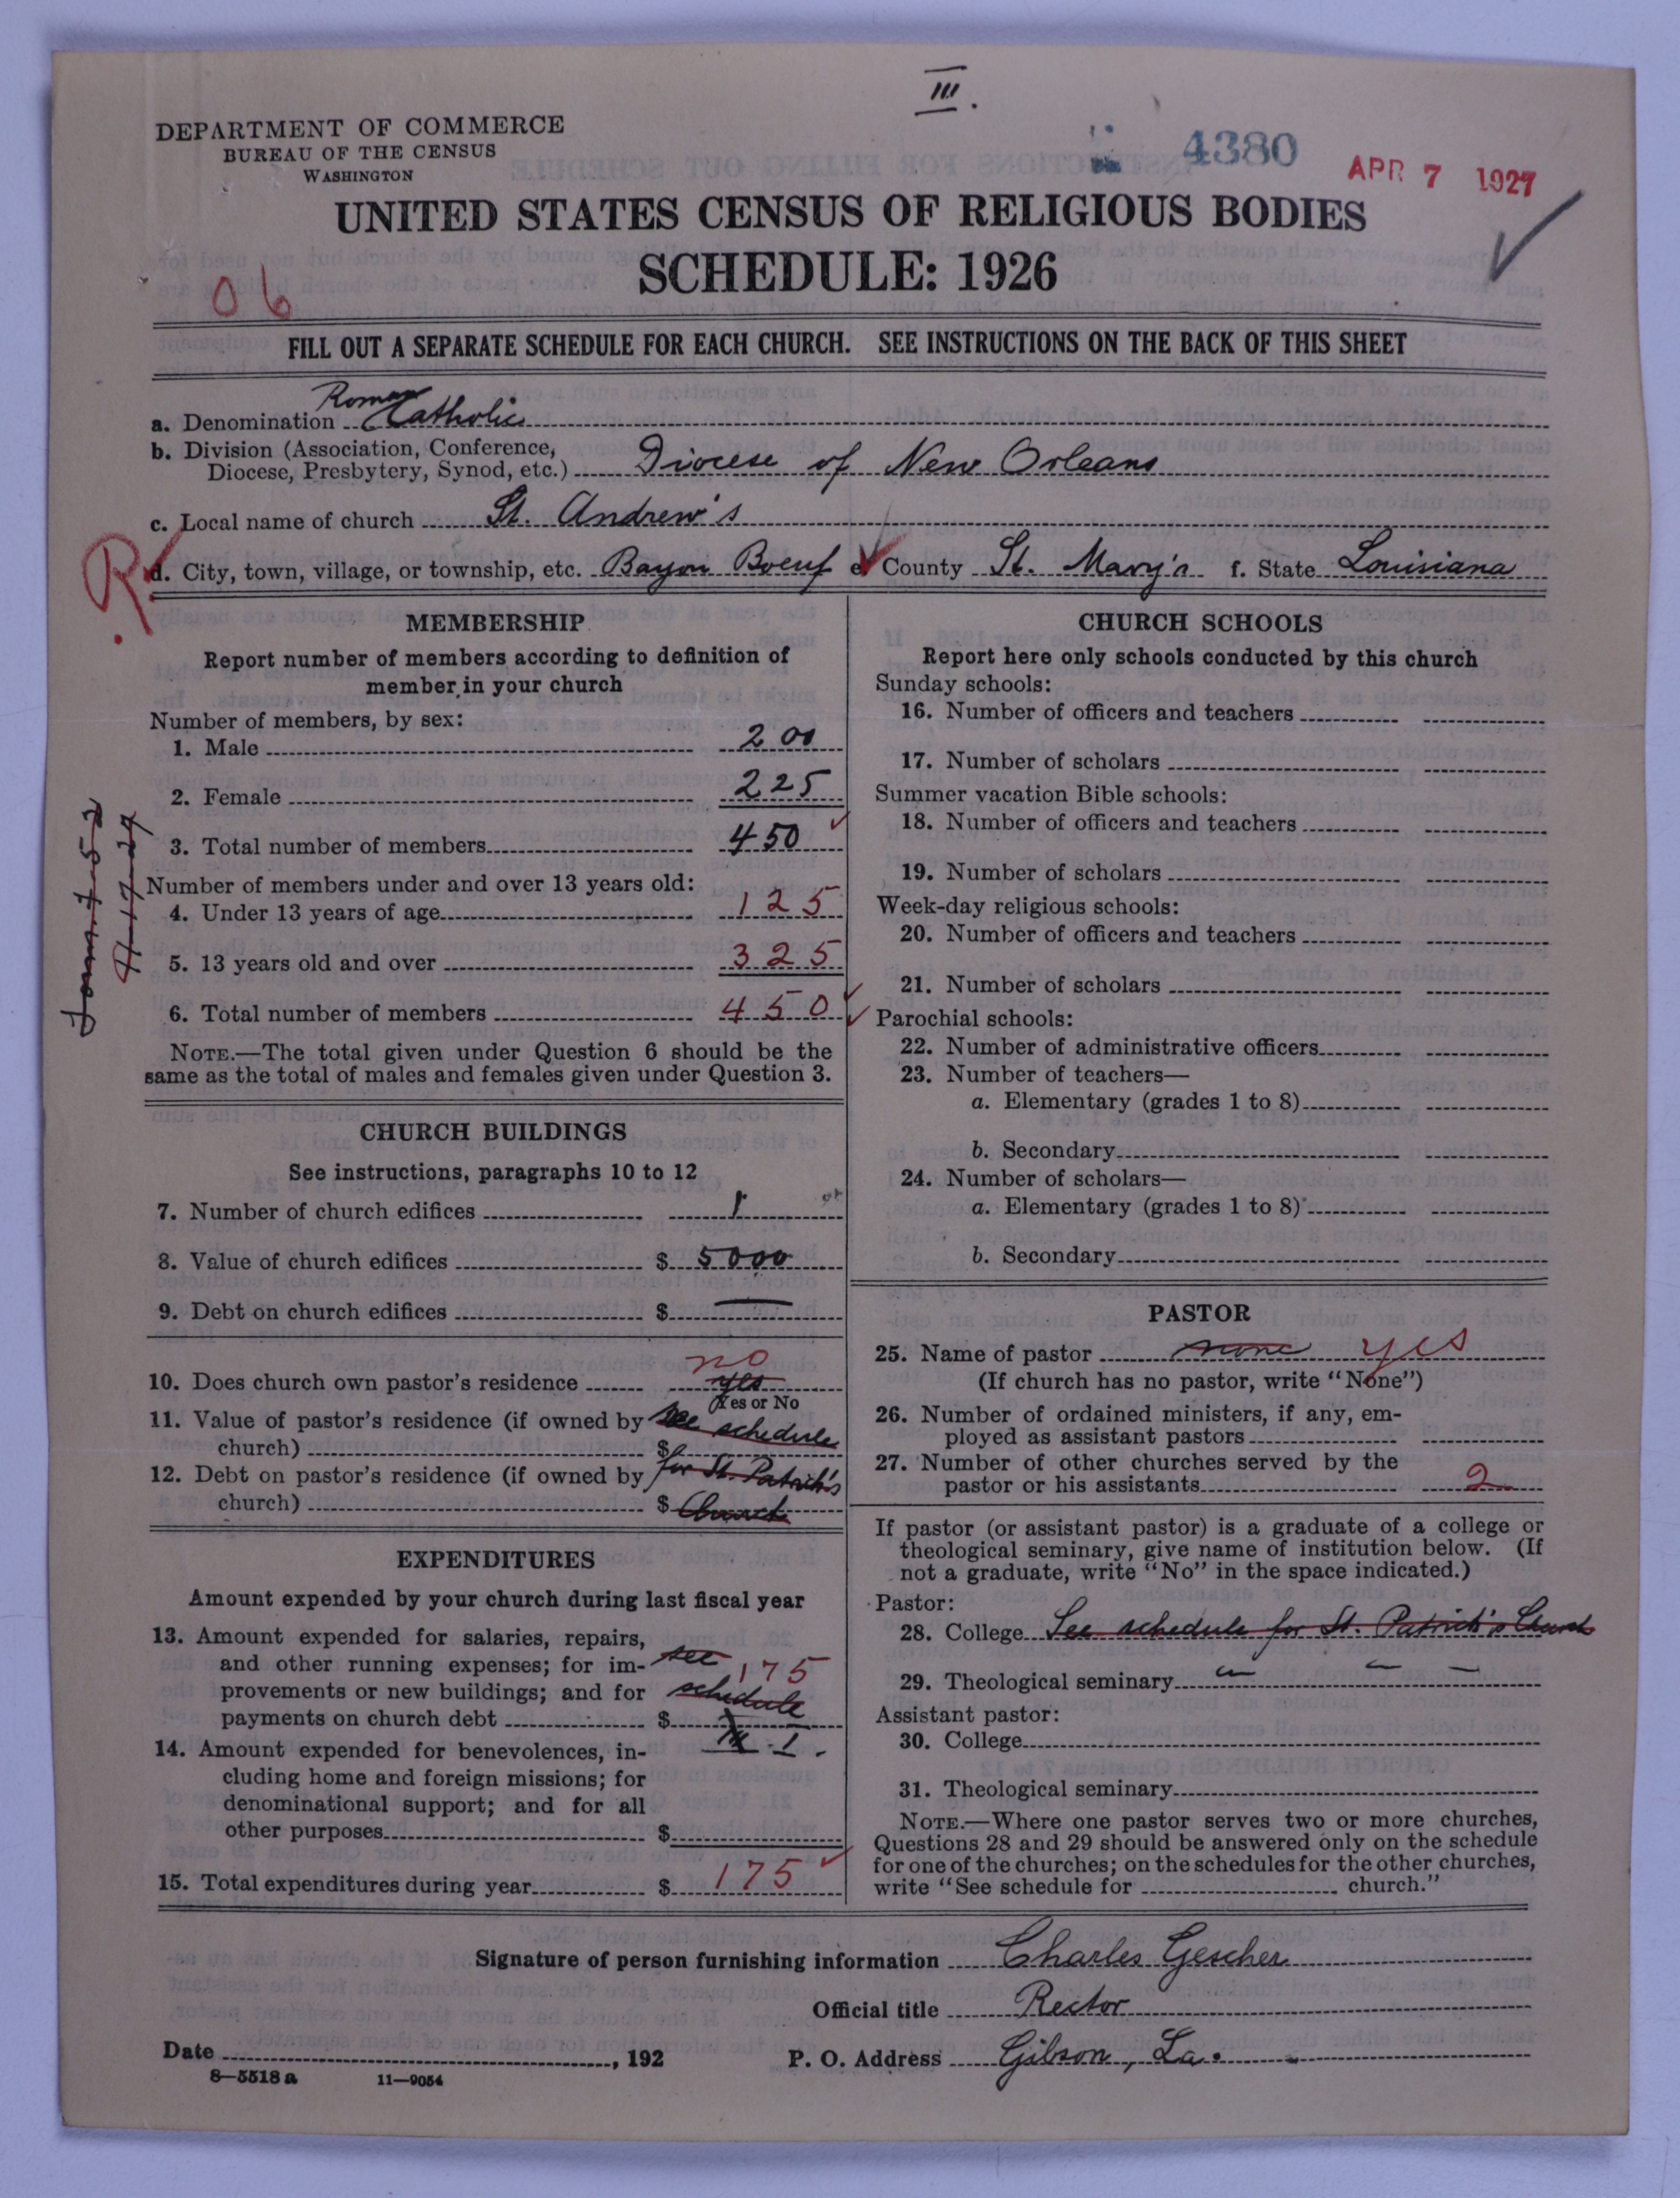 III.
DEPARTMENT OF COMMERCE
BUREAU OF THE CENSUS
WASHINGTON
4380
APR 7 1927
UNITED STATES CENSUS OF RELIGIOUS BODIES
SCHEDULE: 1926
06
FILL OUT A SEPARATE SCHEDULE FOR EACH CHURCH. SEE INSTRUCTIONS ON THE BACK OF THIS SHEET
a. Denomination Roman Catholic
b. Division (Association, Conference,
Diocese, Presbytery, Synod, etc.) Diocese of New Orleans
c. Local name of church St. Andrew's
R.
d. City, town, village, or township, etc. Bayou Boeuf e. County St. Mary's f. State Louisiana
MEMBERSHIP
Report number of members according to definition of
member in your church
Number of members, by sex:
1. Male 200
2. Female 225
3. Total number of members 450
Number of members under and over 13 years old:
4. Under 13 years of age 125
5. 13 years old and over 325
6. Total number of members 450
NOTE.—The total given under Question 6 should be the
same as the total of males and females given under Question 3.
CHURCH BUILDINGS
See instructions, paragraphs 10 to 12
7. Number of church edifices 1
8. Value of church edifices $ 5000
9. Debt on church edifices $ —
no
10. Does church own pastor's residence yes
Yes or No
11. Value of pastor's residence (if owned by see schedule
church) $
12. Debt on pastor's residence (if owned by for St. Patrick's
church) $ Church
EXPENDITURES
Amount expended by your church during last fiscal year
13. Amount expended for salaries, repairs,
and other running expenses; for im- see 175
provements or new buildings; and for schedule
payments on church debt $
14. Amount expended for benevolences, in- I.
cluding home and foreign missions; for
denominational support; and for all
other purposes $
15. Total expenditures during year $ 175
CHURCH SCHOOLS
Report here only schools conducted by this church
Sunday schools:
16. Number of officers and teachers
17. Number of scholars
Summer vacation Bible schools:
18. Number of officers and teachers
19. Number of scholars
Week-day religious schools:
20. Number of officers and teachers
21. Number of scholars
Parochial schools:
22. Number of administrative officers
23. Number of teachers—
a. Elementary (grades 1 to 8)
b. Secondary
24. Number of scholars—
a. Elementary (grades 1 to 8)
b. Secondary
PASTOR
25. Name of pastor none yes
(If church has no pastor, write "None")
26. Number of ordained ministers, if any, em-
ployed as assistant pastors
27. Number of other churches served by the
pastor or his assistants 2
If pastor (or assistant pastor) is a graduate of a college or
theological seminary, give name of institution below. (If
not a graduate, write "No" in the space indicated.)
Pastor:
28. College See schedule for St. Patrick's Church
29. Theological seminary — — —
Assistant pastor:
30. College
31. Theological seminary
NOTE.—Where one pastor serves two or more churches,
Questions 28 and 29 should be answered only on the schedule
for one of the churches; on the schedules for the other churches,
write "See schedule for church."
Signature of person furnishing information Charles Gescher
Official title Rector
Date , 192 P. O. Address Gibson, La.
8—5518 a 11—9054